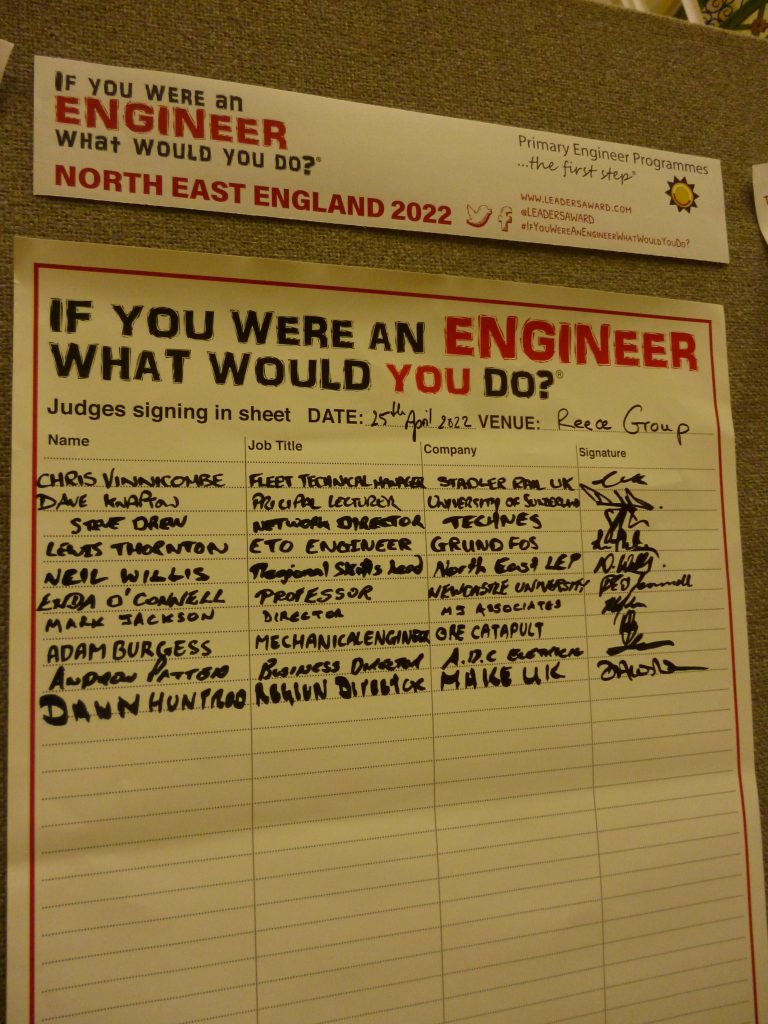 IF YOU WERE an
ENGINEER
WHat WOULD YOU DO?®
NORTH EAST ENGLAND 2022
Primary Engineer Programmes
...the first step®
WWW.LEADERSAWARD.COM
@LEADERSAWARD
#IFYOUWEREANENGINEERWHATWOULDYOUDO?
IF YOU WERE AN ENGINEER
WHAT WOULD YOU DO?®
Judges signing in sheet DATE: 25th April 2022 VENUE: Reece Group
Name Job Title Company Signature
CHRIS VINNICOMBE FLEET TECHNICAL MANAGER STADLER RAIL UK
DAVE KNAPTON PRICIPAL LECTURER UNIVERSITY OF SUNDERLAND
STEVE DREW NETWORK DIRECTOR TECHNES
LEWIS THORNTON ETO ENGINEER GRUNDFOS
NEIL WILLIS Regional Skills Lead North East LEP
ENDA O'CONNELL PROFESSOR NEWCASTLE UNIVERSITY
MARK JACKSON DIRECTOR MJ ASSOCIATES
ADAM BURGESS MECHANICAL ENGINEER ORE CATAPULT
ANDREW BUSINESS DIRECTOR A.D.C ELECTRICAL
DAWN MAKE UK